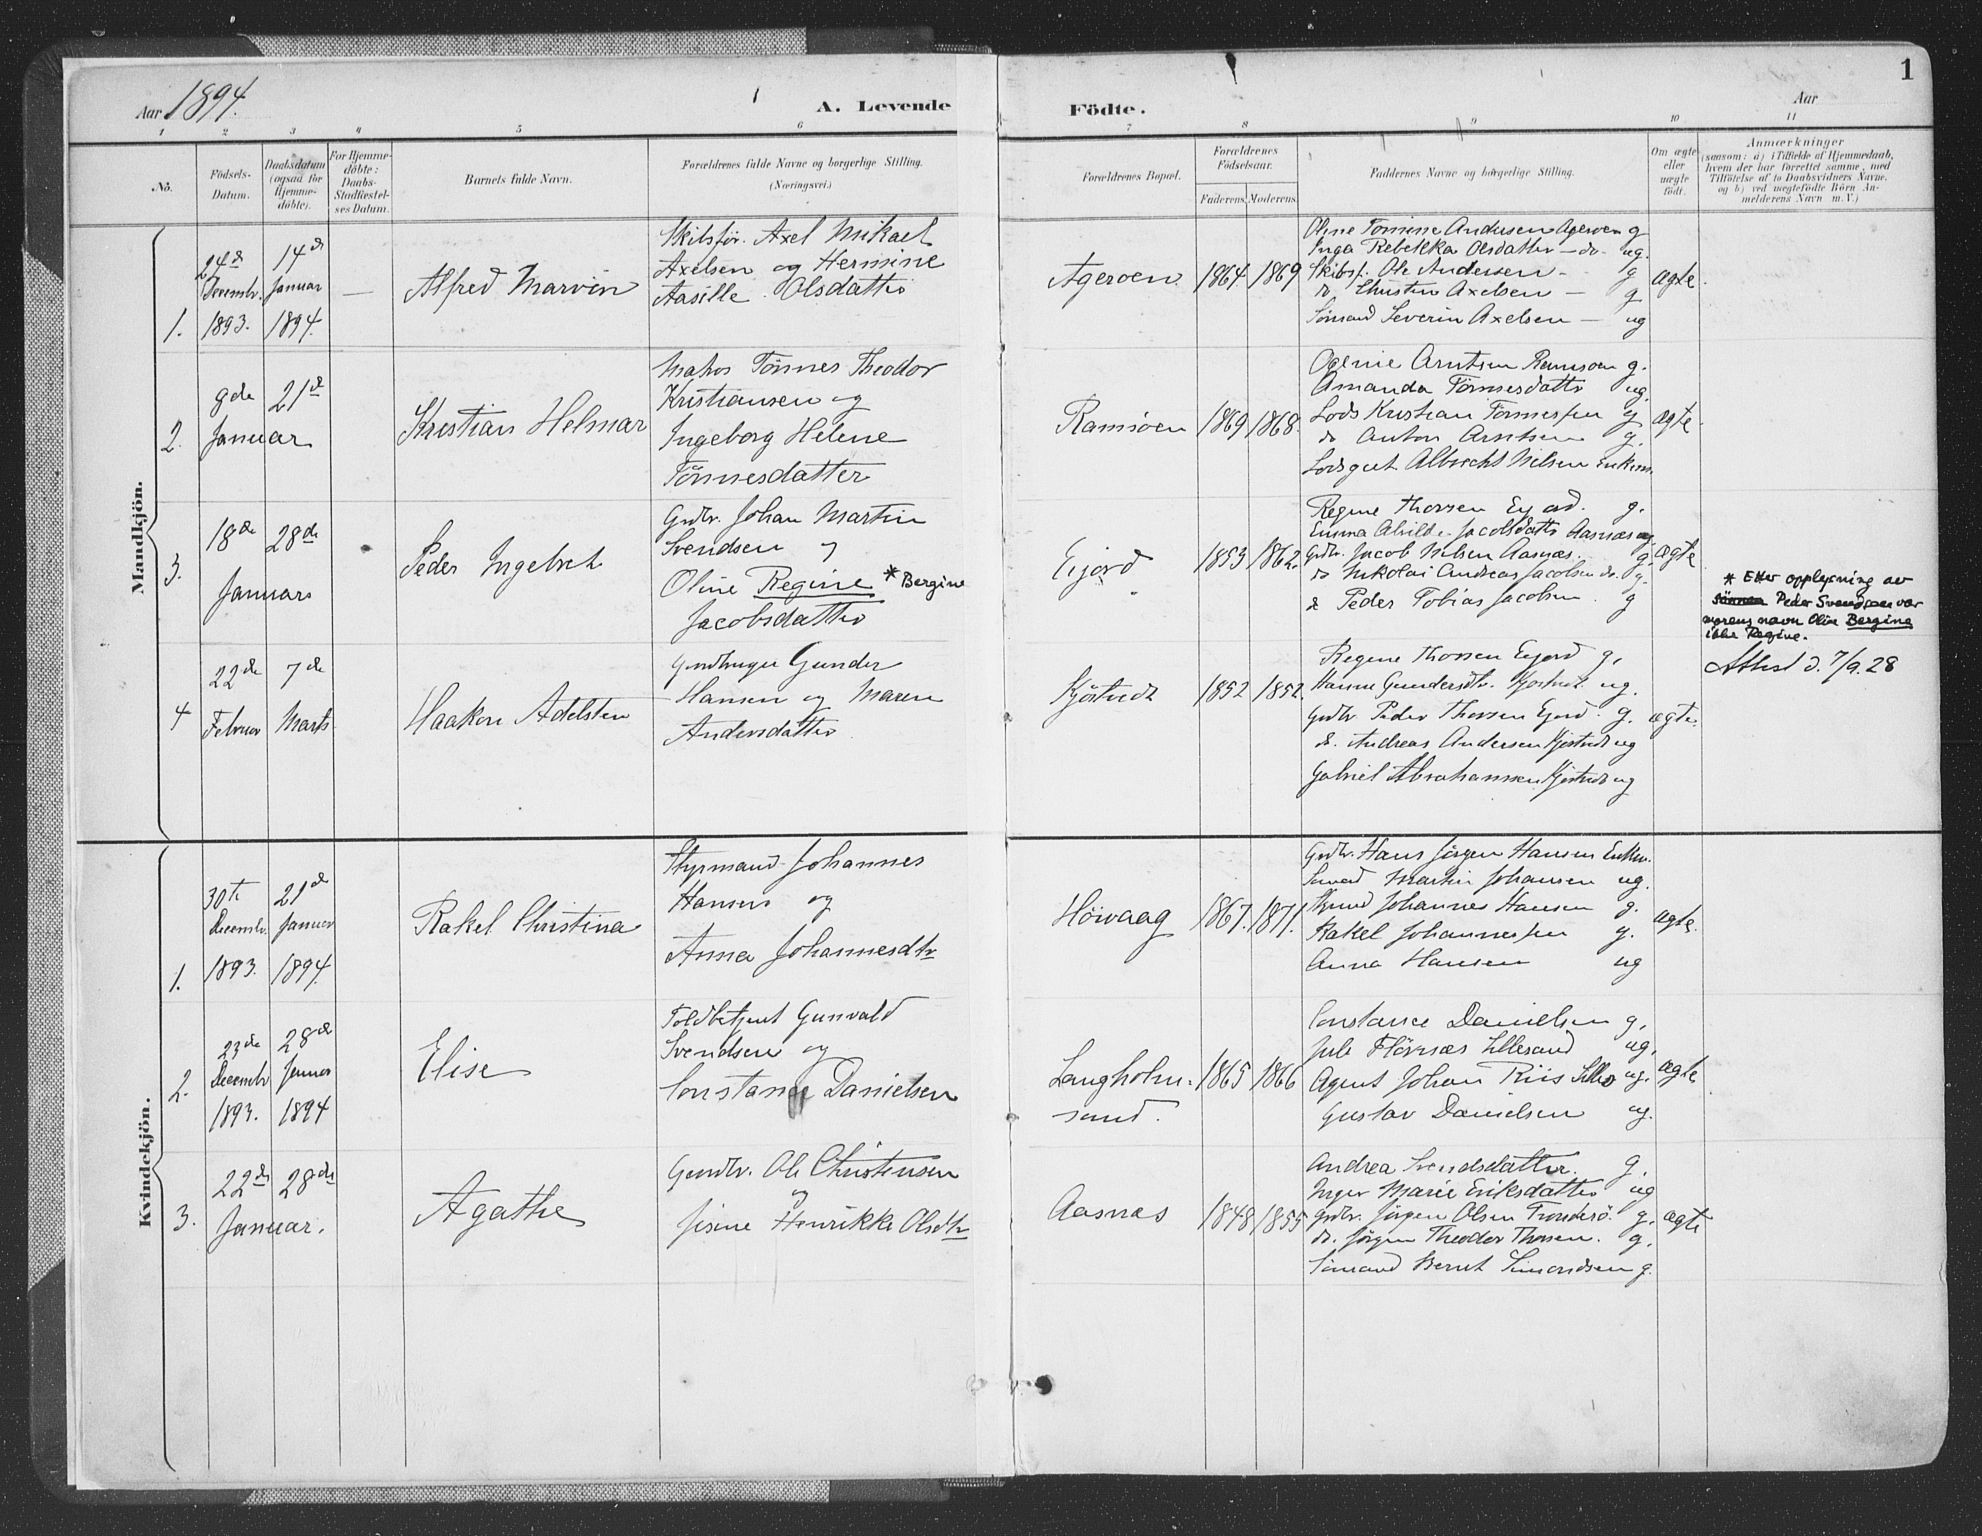 Aar 1894.
A. Levende Födte.
Aar
1
1 2 3 4 5 6 7 8 9 10 11
No.
Födsels-Datum.
Daabsdatum (ogsaa för Hjemme-döbte).
For Hjemme-döbte: Daabs-Stadfæstel-ses Datum.
Barnets fulde Navn.
Forældrenes fulde Navne og borgerlige Stilling.
(Næringsvei.)
Forældrenes Bopæl.
Forældrenes Födselsaar.
Faderens. Moderens.
Faddernes Navne og borgerlige Stilling.
Om ægte eller uægte födt.
Anmærkninger
(saasom: a) i Tilfælde af Hjemmedaab,
hvem der har forrettet samme, med
Tilföielse af to Daabsvidners Navne.
og b) ved uægtefödte Börn An-
melderens Navn m. V.)
Mandkjön.
1.
24d Decembr. 1893.
14d Januar 1894.
—
Alfred Marvin
Skibsför. Axel Mikael
Axelsen og Hermine
Aasille Olsdatter
Ageroen
1864 1869
Oline Tomine Andersen Ageroen g
Inga Rebekka Olsdatter — do. ug.
Skibsf. Ole Andersen — g
do Christen Axelsen — g
Sømand Severin Axelsen — ug
ægte
2.
9de Januar
21d
Kristian Helmar
Matros Tönnes Theodor
Kristiansen og
Ingeborg Helene
Tönnesdatter
Ramsöen
1869 1868
Arntsen Ramsöen g.
Amanda Tönnesdatter ug.
Lods Kristian Tönnessen g
do Anton Arntsen g.
Lodsgut Albrecht Nilsen Enkem.
ægte
3.
18de Januar
28de
Peder Ingebret
Grdbr. Johan Martin
Svendsen og
Oline Regine * Bergine
Jacobsdatter
Eijord
1853 1862.
Regine Thorsen g.
Emma Alvilde Jacobsdatter Aasnæs ug
Grdbr. Jacob Nilsen Aasnæs. g.
do Nikolai Andreas Jacobsen do. g.
do Peder Tobias Jacobsen. g
ægte
* Etter opplysning av
sönnen Peder Svendsen var
morens navn Oline Bergine
ikke Regine.
Attest d. 7/9.28
4
22de Februar
7de Marts
Haakon Adelsten
Gaardbruger Gunder
Hansen og Maren
Andersdatter
Kjöstvedt
1852 1852.
Regine Thorsen Eijord g.
Hanne Gundersdtr. Kjöstvedt ug.
Grdbr Peder Thorsen Ejord. g.
do. Andreas Andersen Kjöstvedt ug
Gabriel Abrahamsen Kjöstvedt ug
ægte.
Kvindekjön.
1.
30te Decembr. 1893.
21d Januar 1894.
Rakel Christina
Styrmand Johannes
Hansen og
Anna Johannesdtr
Höivaag
1867. 1871.
Grdbr. Hans Jörgen Hansen Enkem.
Martin Johansen ug.
Johannes Hansen g.
Rakel Johannessen g.
Anna Hansen ug
ægte.
2.
23de Decembr 1893.
28de Januar 1894
Elise
Toldbetjent Gunvald
Svendsen og
Constance Danielsen
Langholm-
sund.
1865 1866
Constance Danielsen g.
Julie Lillesand ug.
Agent Johan Riis ug.
Gustav Danielsen ug.
ægte
3.
22d Januar.
28de
Agathe
Gaardbr. Ole Christensen
og
Jisine Henrikke Olsdtr
Aasnæs
1848 1855
Andrea Svendsdatter. g.
Inger Marie Eriksdatter ug
Grdbr. Jörgen Olsen g.
do. Jörgen Theodor Thorsen. g.
Sömand Bernt Simondsen g.
ægte